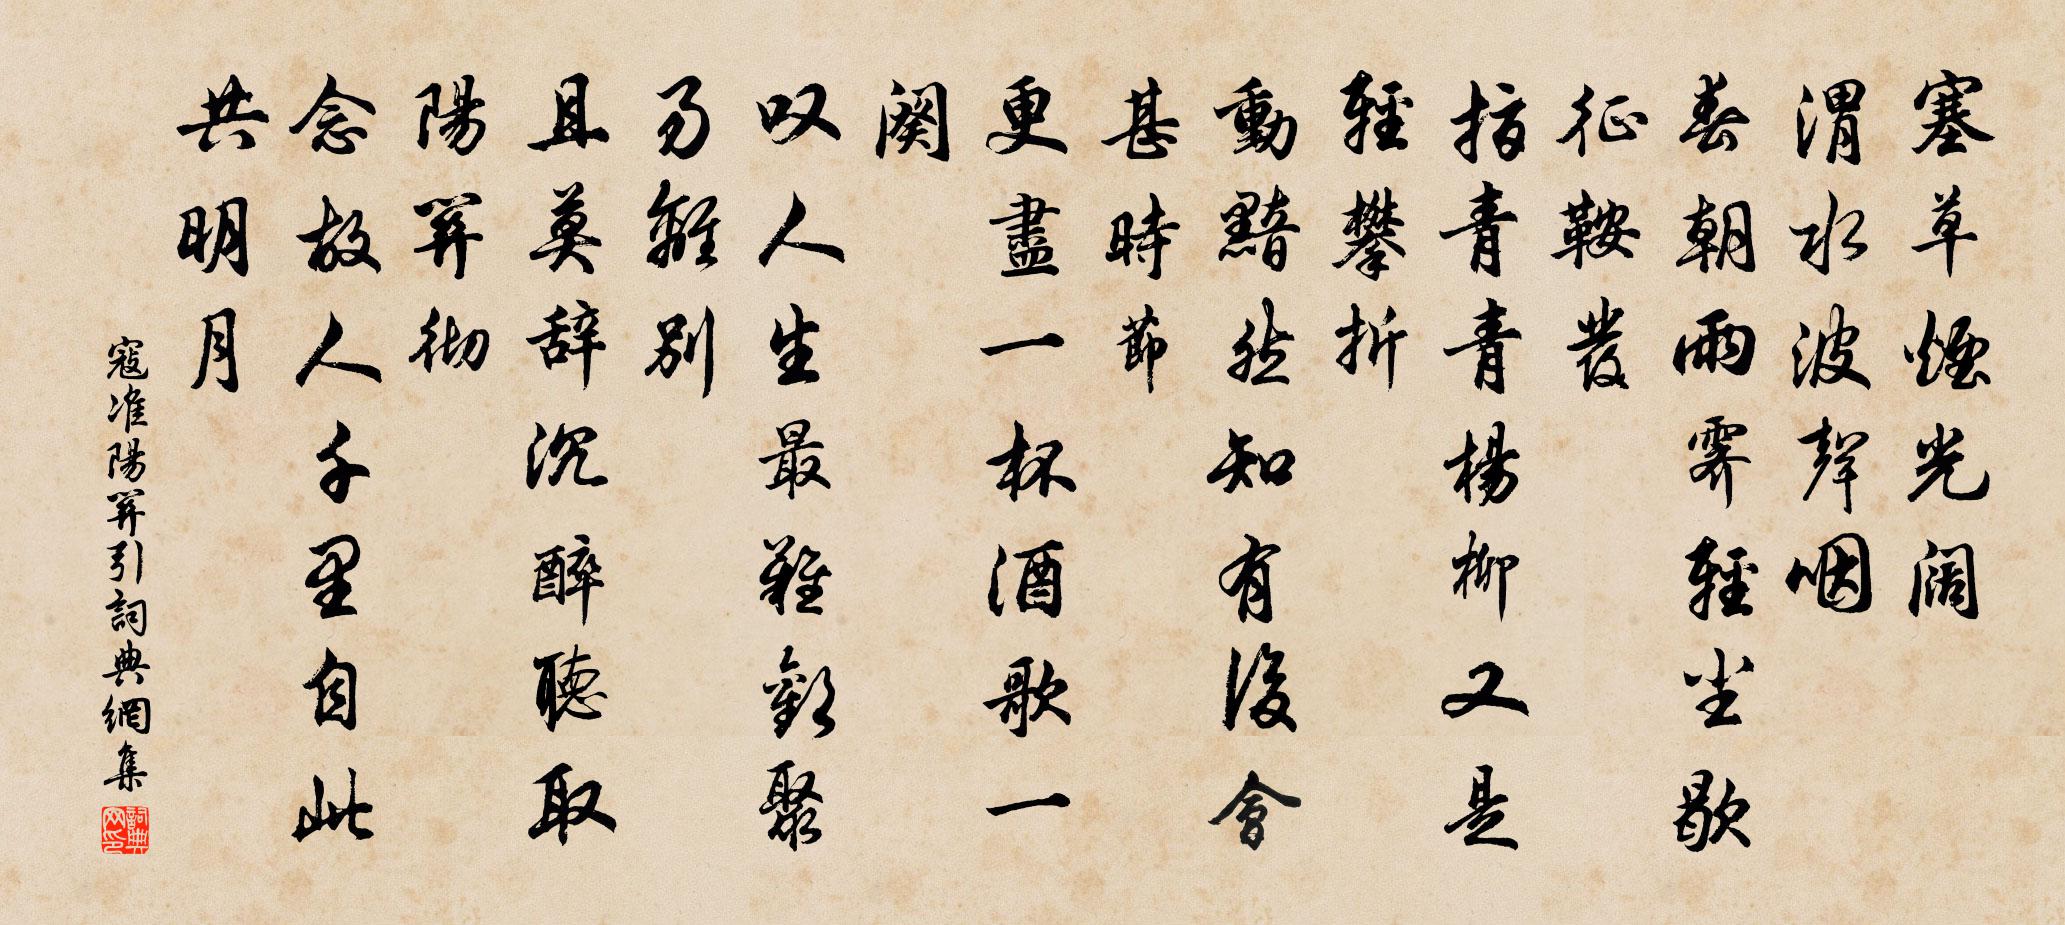 塞草煙光闊
渭水波聲咽
春朝雨霽輕尘歇
征鞍發
指青青楊柳又是
輕攀折
動黯然知有後會
甚時節
更盡一杯酒歌一
闋
叹人生最難歡聚
易離別
且莫辞沉醉聽取
陽關彻
念故人千里自此
共明月
寇准陽關引詞典網集
詞典网印